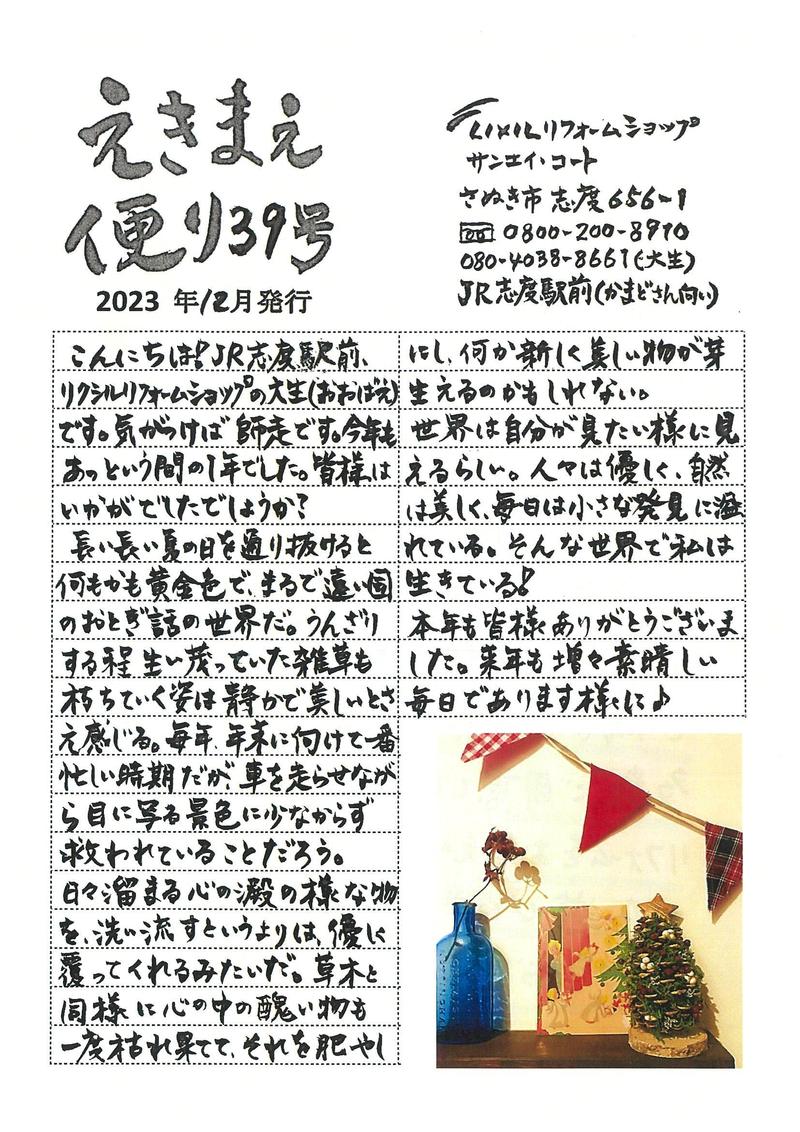 えきまえ
便り39号
2023 年12月発行
LIXILリフォームショップ
サンエイ・コート
さぬき市 志度656-1
0800-200-8910
080-4038-8661(大生)
JR志度駅前(かまどさん向い)
こんにちは!JR志度駅前、
リクシルリフォームショップの大生(おおばえ)
です。気がつけば 師走です。今年も
あっという間の1年でした。皆様は
いかがでしたでしょうか?
長い長い夏の日を通り抜けると
何もかも黄金色で、まるで遠い国
のおとぎ話の世界だ。うんざり
する程 生い茂っていた雑草も
朽ちていく姿は静かで美しいとさ
え感じる。毎年、年末に向けて一番
忙しい時期だが、車を走らせなが
ら目に写る景色に少なからず
救われていることだろう。
日々溜まる心の澱の様な物
を、洗い流すというよりは、優しく
覆ってくれるみたいだ。草木と
同様に心の中の醜い物も
一度枯れ果てて、それを肥やし
にし、何か新しく美しい物が芽
生えるのかもしれない。
世界は自分が見たい様に見
えるらしい。人々は優しく、自然
は美しく、毎日は小さな発見に溢
れている。そんな世界で私は
生きている!
本年も皆様ありがとうございま
した。来年も増々素晴しい
毎日であります様に♪